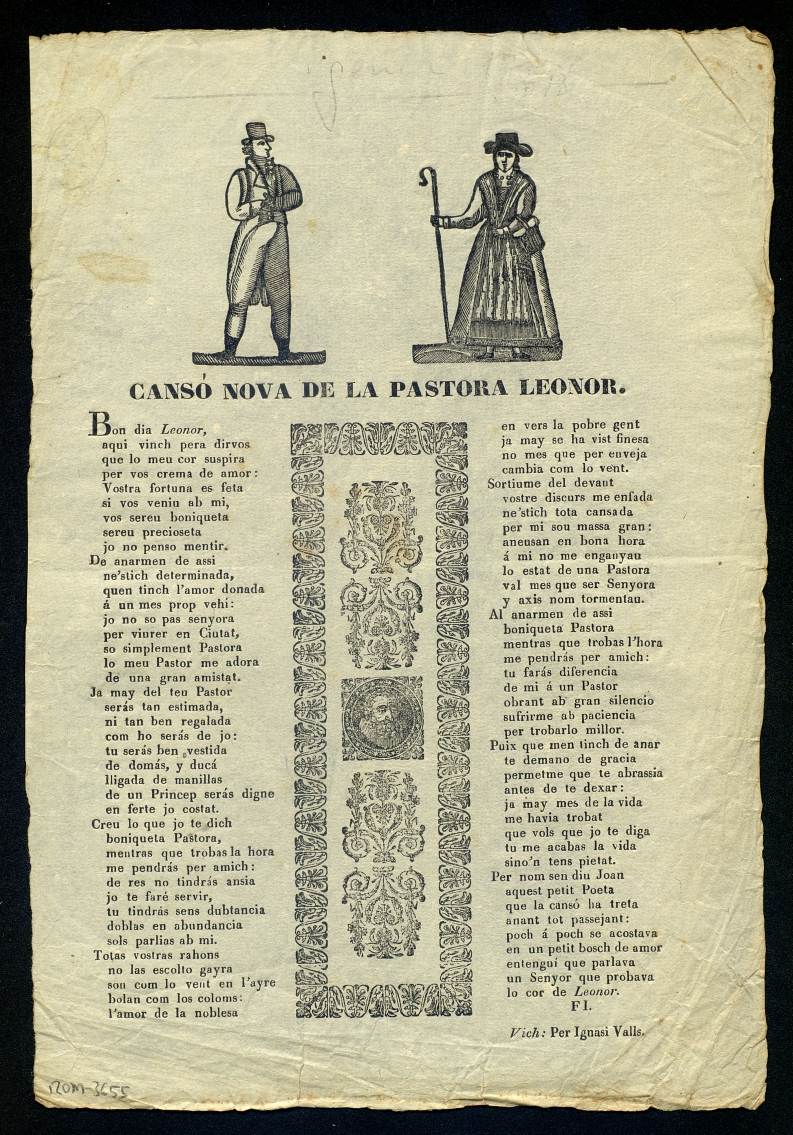 CANSÓ NOVA DE LA PASTORA LEONOR.
Bon dia Leonor,
aqui vinch pera dirvos
que lo meu cor suspira
per vos crema de amor:
Vostra fortuna es feta
si vos veniu ab mi,
vos sereu boniqueta
sereu precioseta
jo no penso mentir.
De anarmen de assi
ne'stich determinada,
quen tinch l'amor donada
á un mes prop vehi:
jo no so pas senyora
per viurer en Ciutat,
so simplement Pastora
lo meu Pastor me adora
de una gran amistat.
Ja may del teu Pastor
serás tan estimada,
ni tan ben regalada
com ho serás de jo:
tu serás ben vestida
de domás, y ducá
lligada de manillas
de un Princep serás digne
en ferte jo costat.
Creu lo que jo te dich
boniqueta Pastora,
mentras que trobas la hora
me pendrás per amich:
de res no tindrás ansia
jo te faré servir,
tu tindrás sens dubtancia
doblas en abundancia
sols parlias ab mi.
Totas vostras rahons
no las escolto gayra
son com lo vent en l'ayre
bolan com los coloms:
l'amor de la noblesa
en vers la pobre gent
ja may se ha vist finesa
no mes que per enveja
cambia com lo vent.
Sortiume del devant
vostre discurs me enfada
ne'stich tota cansada
per mi sou massa gran:
aneusan en bona hora
á mi no me enganyau
lo estat de una Pastora
val mes que ser Senyora
y axis nom tormentau.
Al anarmen de assi
boniqueta Pastora
mentras que trobas l'hora
me pendrás per amich:
tu farás diferencia
de mi á un Pastor
obrant ab gran silencio
sufrirme ab paciencia
per trobarlo millor.
Puix que men tinch de anar
te demano de gracia
permetme que te abrassia
antes de te dexar:
ja may mes de la vida
me havia trobat
que vols que jo te diga
tu me acabas la vida
sino'n tens pietat.
Per nom sen diu Joan
aquest petit Poeta
que la cansó ha treta
anant tot passejant:
poch á poch se acostava
en un petit bosch de amor
entenguí que parlava
un Senyor que probava
lo cor de Leonor.
FI.
Vich: Per Ignasi Valls.
ROM-3655